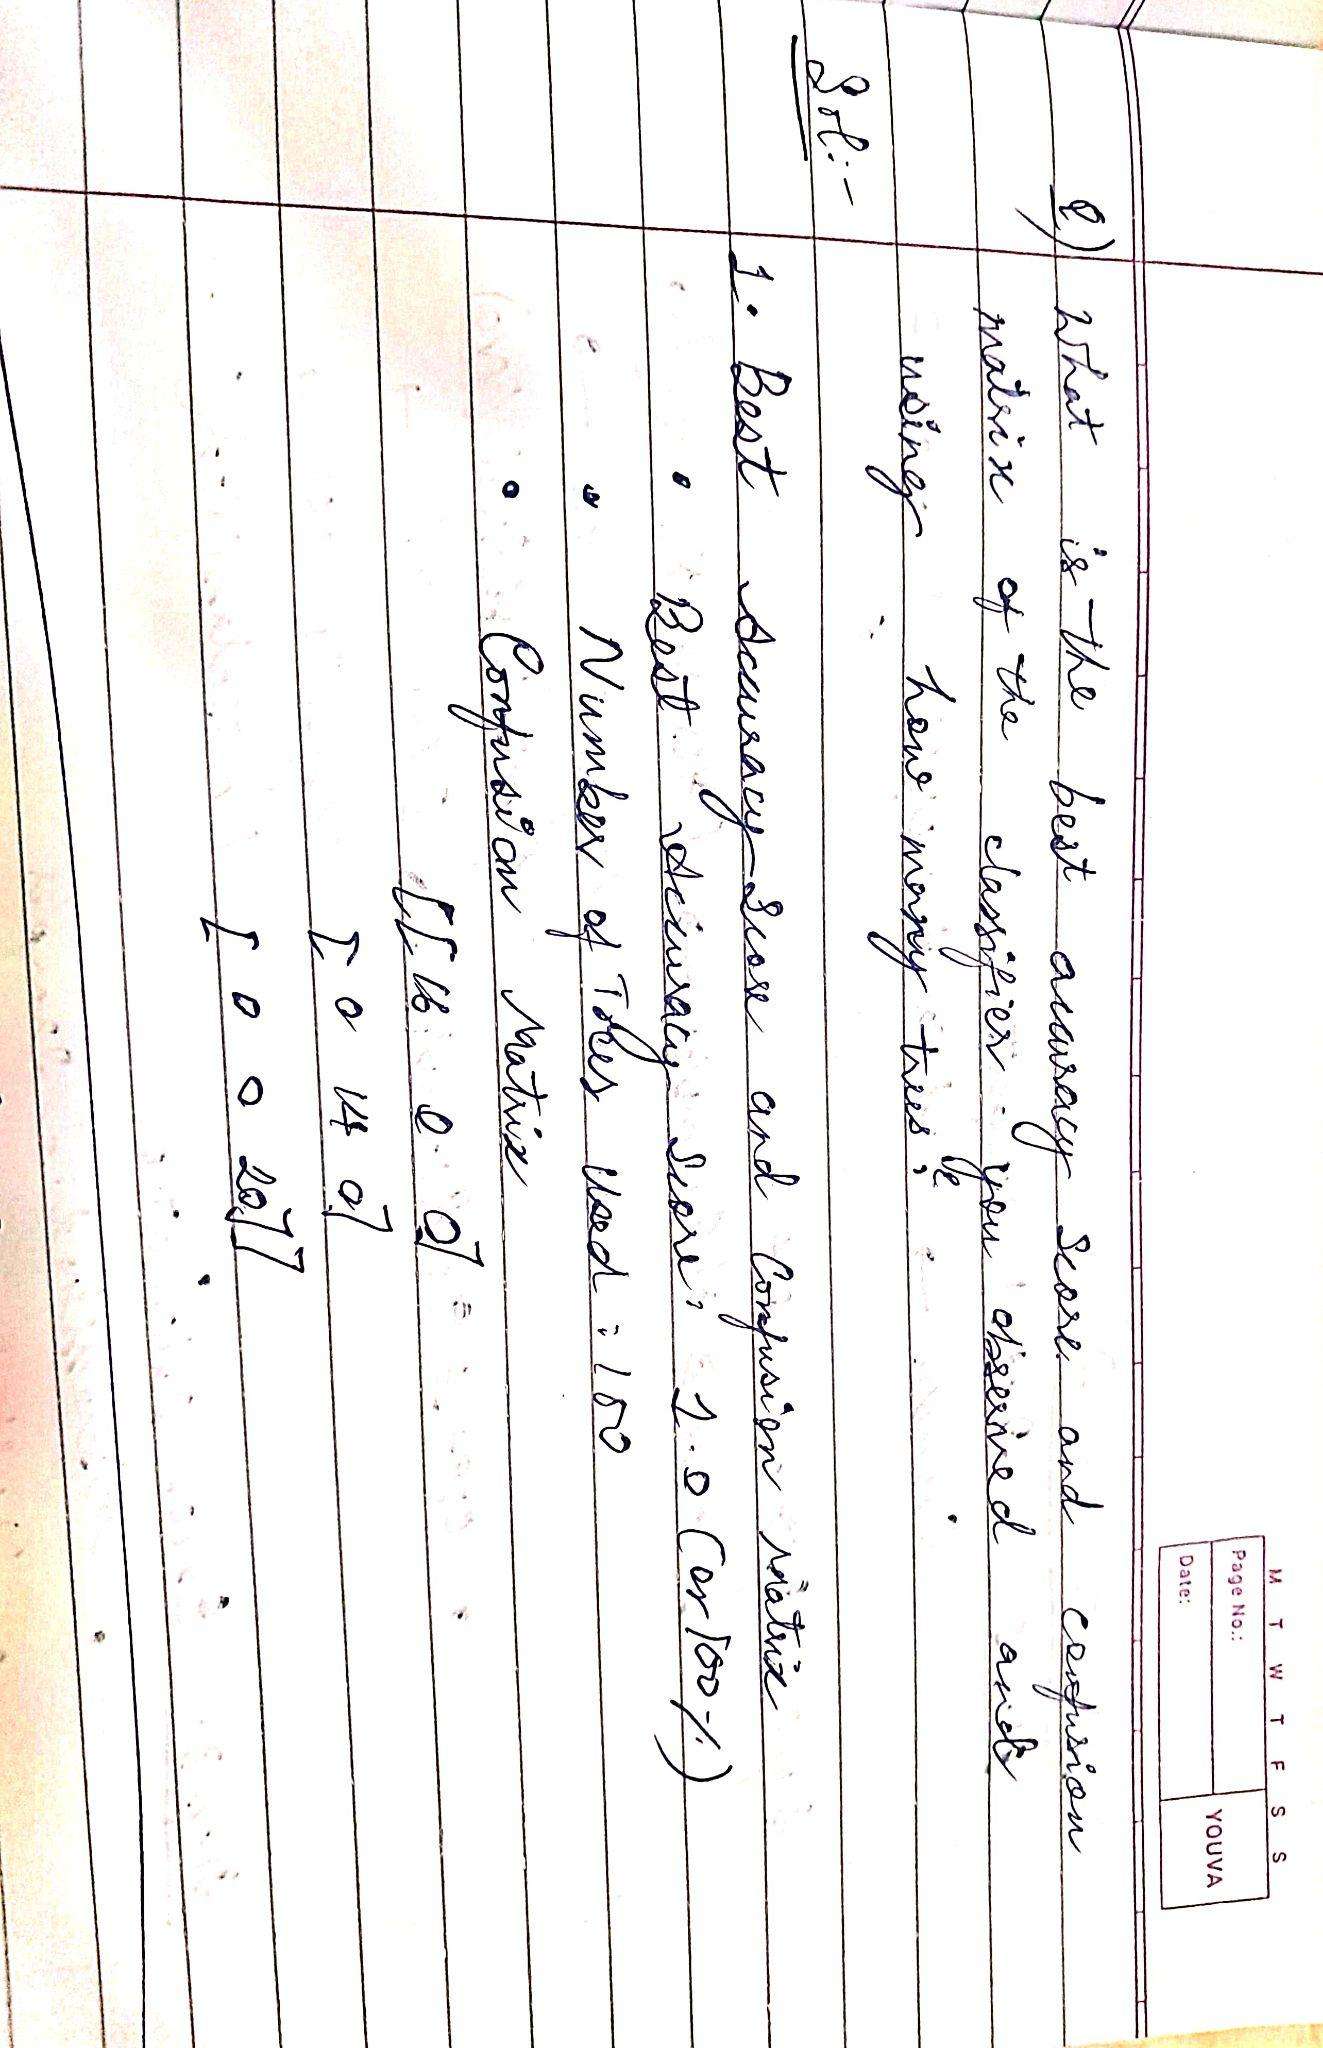 M T W T F S S
Page No.:
Date:
YOUVA
Q) What is the best accuracy score and confusion
matrix of the classifier you observed and
using how many trees?
Sol:-
1. Best Accuracy Score and Confusion Matrix
• Best Accuracy Score: 1.0 (or 100%)
• Number of Trees Used: 100
• Confusion Matrix
[[16 0 0]
[0 14 0]
[0 0 20]]